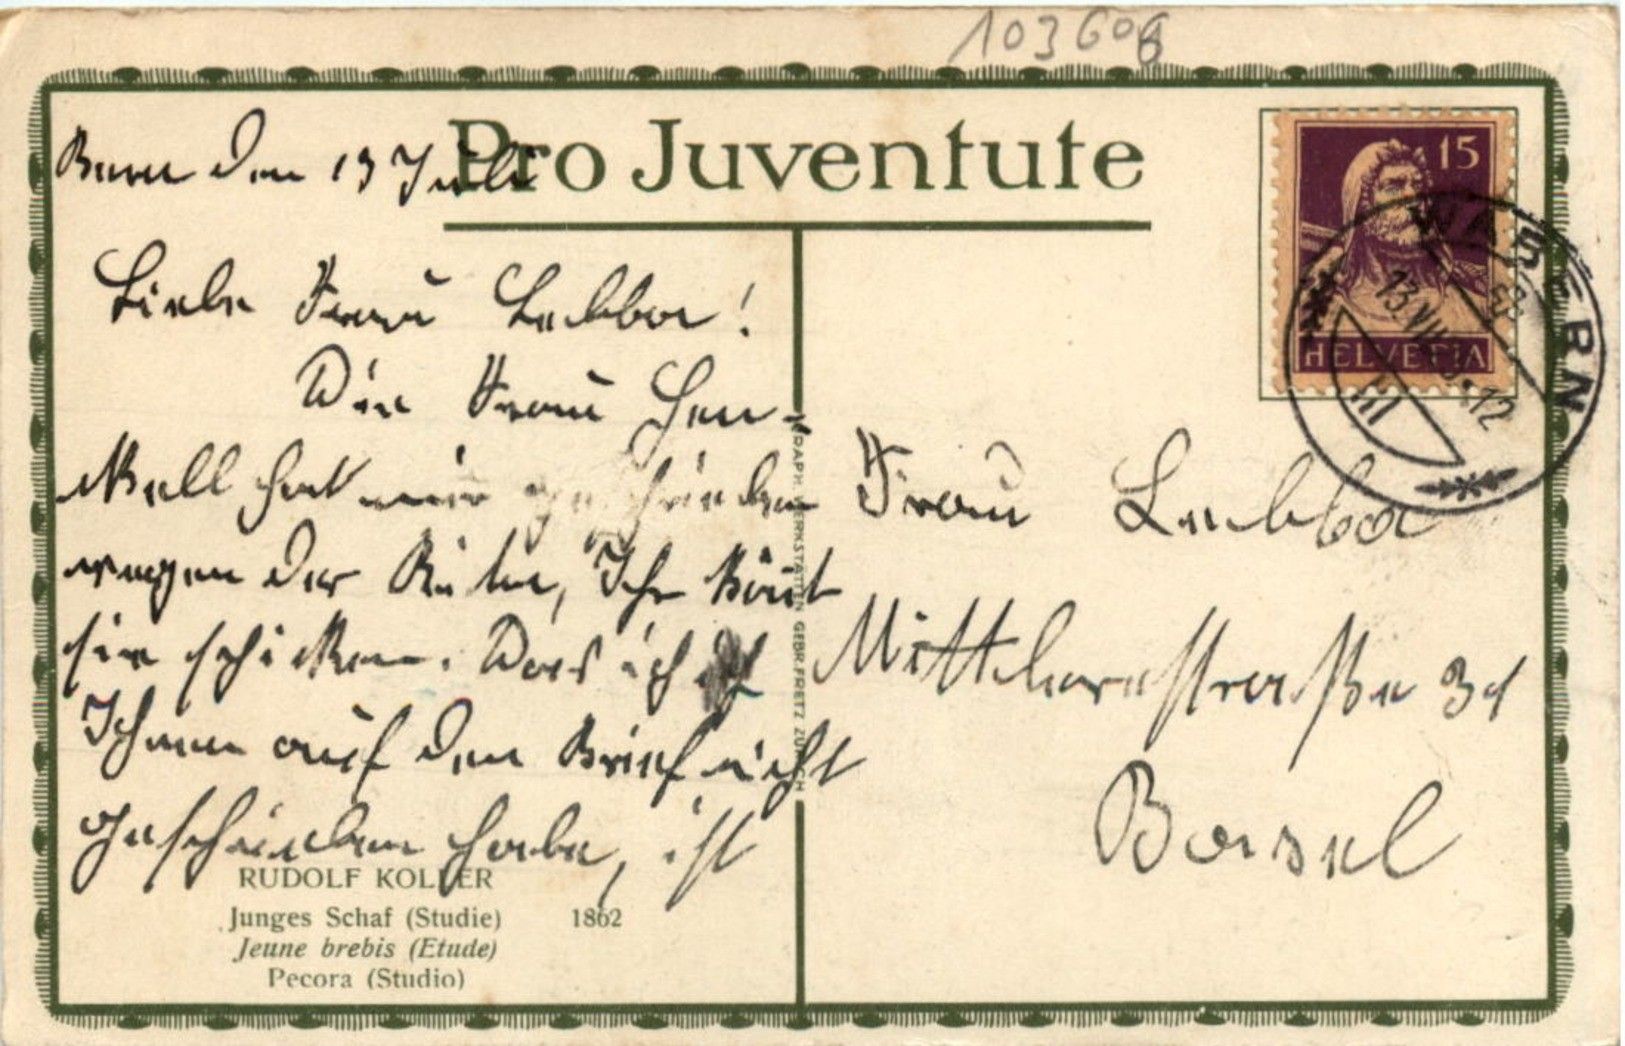 103606
Pro Juventute
Bern den 13 Juli
Liebe Frau Lebba!
Die Frau Hen-
kell hat mir geschrieben
wegen der Kiste, Ihr könt
sie schicken. Das ich
Ihnen auf den Brief nicht
geschrieben habe, ist
RUDOLF KOLLER
Junges Schaf (Studie) 1862
Jeune brebis (Etude)
Pecora (Studio)
GRAPH. WERKSTÄTTEN GEBR. FRETZ ZÜRICH
15
HELVETIA
BERN
13. VII
12
III
Frau Lebba
Mittlerestraße 31
Basel